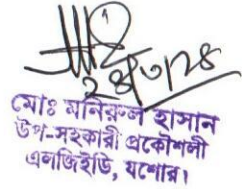 মোঃ মনিরুল হাসান
উপ-সহকারী প্রকৌশলী
এলজিইডি, যশোর।